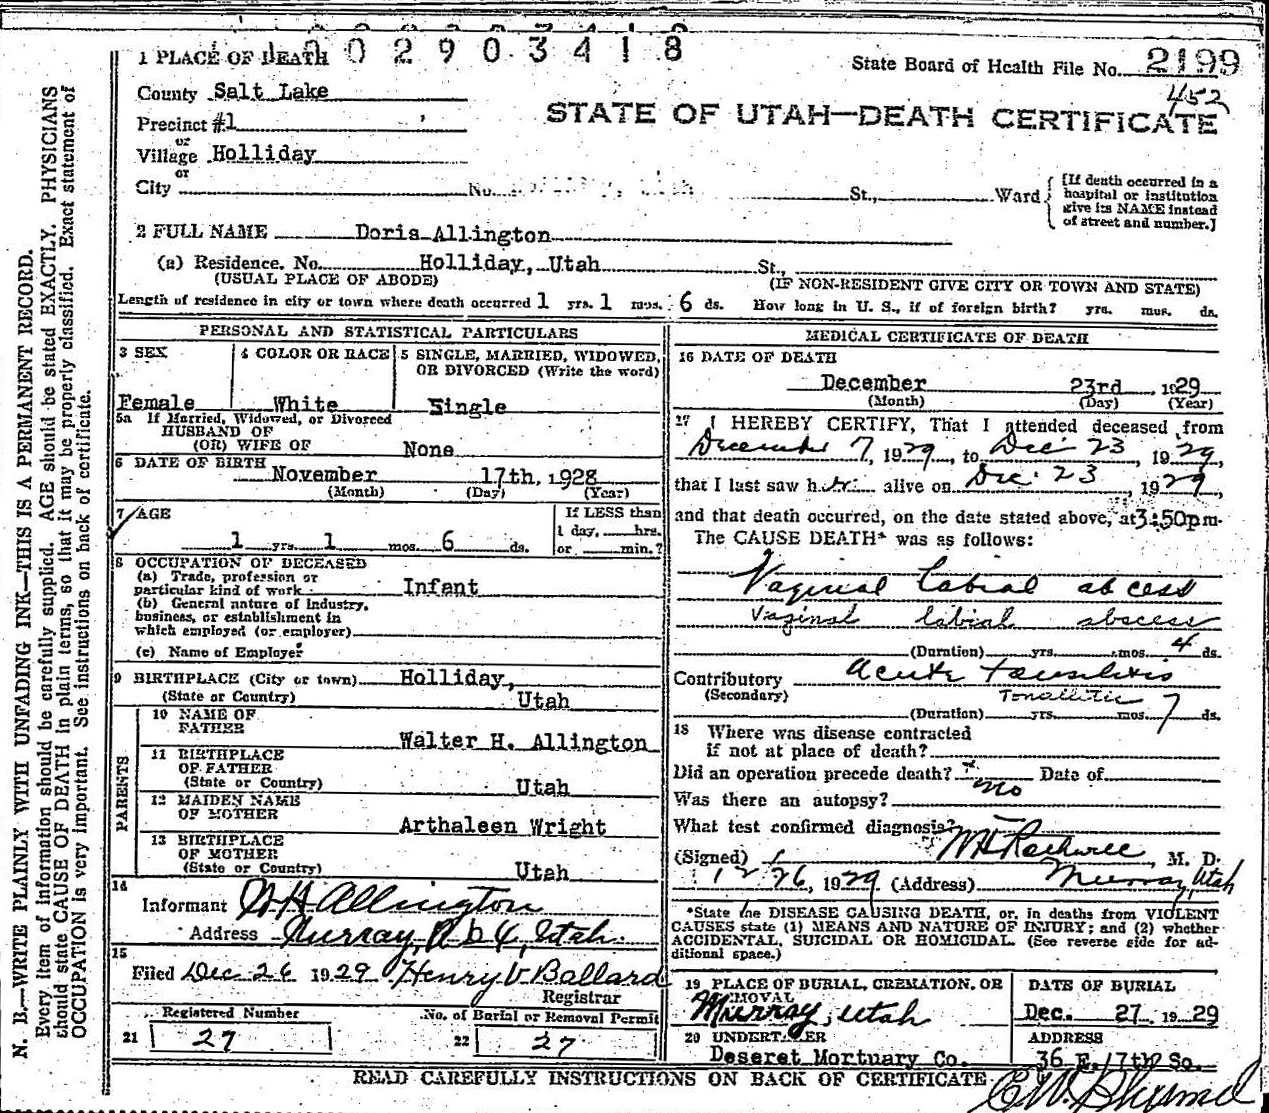 0 0 2 9 0 3 4 1 8
1 PLACE OF DEATH
State Board of Health File No. 2199
452
County Salt Lake
STATE OF UTAH—DEATH CERTIFICATE
Precinct #1
or
Village Holliday
or
City No. St., Ward
[If death occurred in a hospital or institution give its NAME instead of street and number.]
2 FULL NAME Doris Allington
(a) Residence. No. Holliday, Utah St.,
(USUAL PLACE OF ABODE) (IF NON-RESIDENT GIVE CITY OR TOWN AND STATE)
Length of residence in city or town where death occurred 1 yrs. 1 mos. 6 ds. How long in U. S., if of foreign birth? yrs. mos. ds.
PERSONAL AND STATISTICAL PARTICULARS
3 SEX
Female
4 COLOR OR RACE
White
5 SINGLE, MARRIED, WIDOWED, OR DIVORCED (Write the word)
Single
5a If Married, Widowed, or Divorced
HUSBAND OF
(OR) WIFE OF None
6 DATE OF BIRTH
November 17th, 1928
(Month) (Day) (Year)
7 AGE
1 yrs. 1 mos. 6 ds.
If LESS than
1 day, hrs.
or min.?
8 OCCUPATION OF DECEASED
(a) Trade, profession or
particular kind of work Infant
(b) General nature of industry,
business, or establishment in
which employed (or employer)
(c) Name of Employer
9 BIRTHPLACE (City or town) Holliday,
(State or Country) Utah
PARENTS
10 NAME OF
FATHER
Walter H. Allington
11 BIRTHPLACE
OF FATHER
(State or Country) Utah
12 MAIDEN NAME
OF MOTHER
Arthaleen Wright
13 BIRTHPLACE
OF MOTHER
(State or Country) Utah
14
Informant W H Allington
Address Murray, R D 4, Utah.
15
Filed Dec 26 1929 Henry V Ballard
Registrar
Registered Number
21 27
No. of Burial or Removal Permit
22 27
MEDICAL CERTIFICATE OF DEATH
16 DATE OF DEATH
December 23rd 1929
(Month) (Day) (Year)
17 I HEREBY CERTIFY, That I attended deceased from
December 7, 1929, to Dec 23, 1929,
that I last saw her alive on Dec 23, 1929,
and that death occurred, on the date stated above, at 3:50pm.
The CAUSE DEATH* was as follows:
Vaginal labial abcess
Vaginal labial abscess
(Duration) yrs. mos. 4 ds.
Contributory Acute tonsilitis
(Secondary)
(Duration) yrs. mos. 7 ds.
18 Where was disease contracted
if not at place of death?
Did an operation precede death? Date of
no
Was there an autopsy?
What test confirmed diagnosis?
(Signed) M. D.
12 26, 1929 (Address) Murray, Utah
*State the DISEASE CAUSING DEATH, or, in deaths from VIOLENT
CAUSES state (1) MEANS AND NATURE OF INJURY; and (2) whether
ACCIDENTAL, SUICIDAL OR HOMICIDAL. (See reverse side for ad-
ditional space.)
19 PLACE OF BURIAL, CREMATION, OR
REMOVAL
Murray, Utah
DATE OF BURIAL
Dec. 27 1929
20 UNDERTAKER
Deseret Mortuary Co.
ADDRESS
36 E. 17th So.
READ CAREFULLY INSTRUCTIONS ON BACK OF CERTIFICATE
N. B.—WRITE PLAINLY WITH UNFADING INK—THIS IS A PERMANENT RECORD.
Every item of information should be carefully supplied. AGE should be stated EXACTLY. PHYSICIANS
should state CAUSE OF DEATH in plain terms, so that it may be properly classified. Exact statement of
OCCUPATION is very important. See instructions on back of certificate.